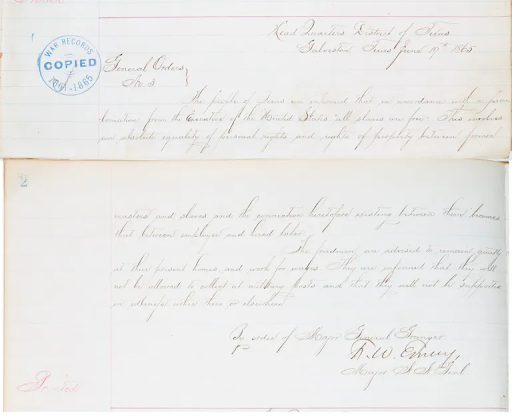 Printed
Head Quarters District of Texas
Galveston Texas June 19th 1865
WAR RECORDS
COPIED
1861-1865
General Orders
No. 3
The people of Texas are informed that in accordance with a procla-
mation from the Executive of the United States "all slaves are free." This involves
an absolute equality of personal rights and rights of property between former
2
masters and slaves and the connection heretofore existing between them becomes
that between employer and hired labor.
The freedmen are advised to remain quietly
at their present homes and work for wages. They are informed that they will
not be allowed to collect at military posts and that they will not be supported
in idleness either there or elsewhere
By order of Major General Granger
F. W. Emery,
Major & A. A. Genl.
Printed